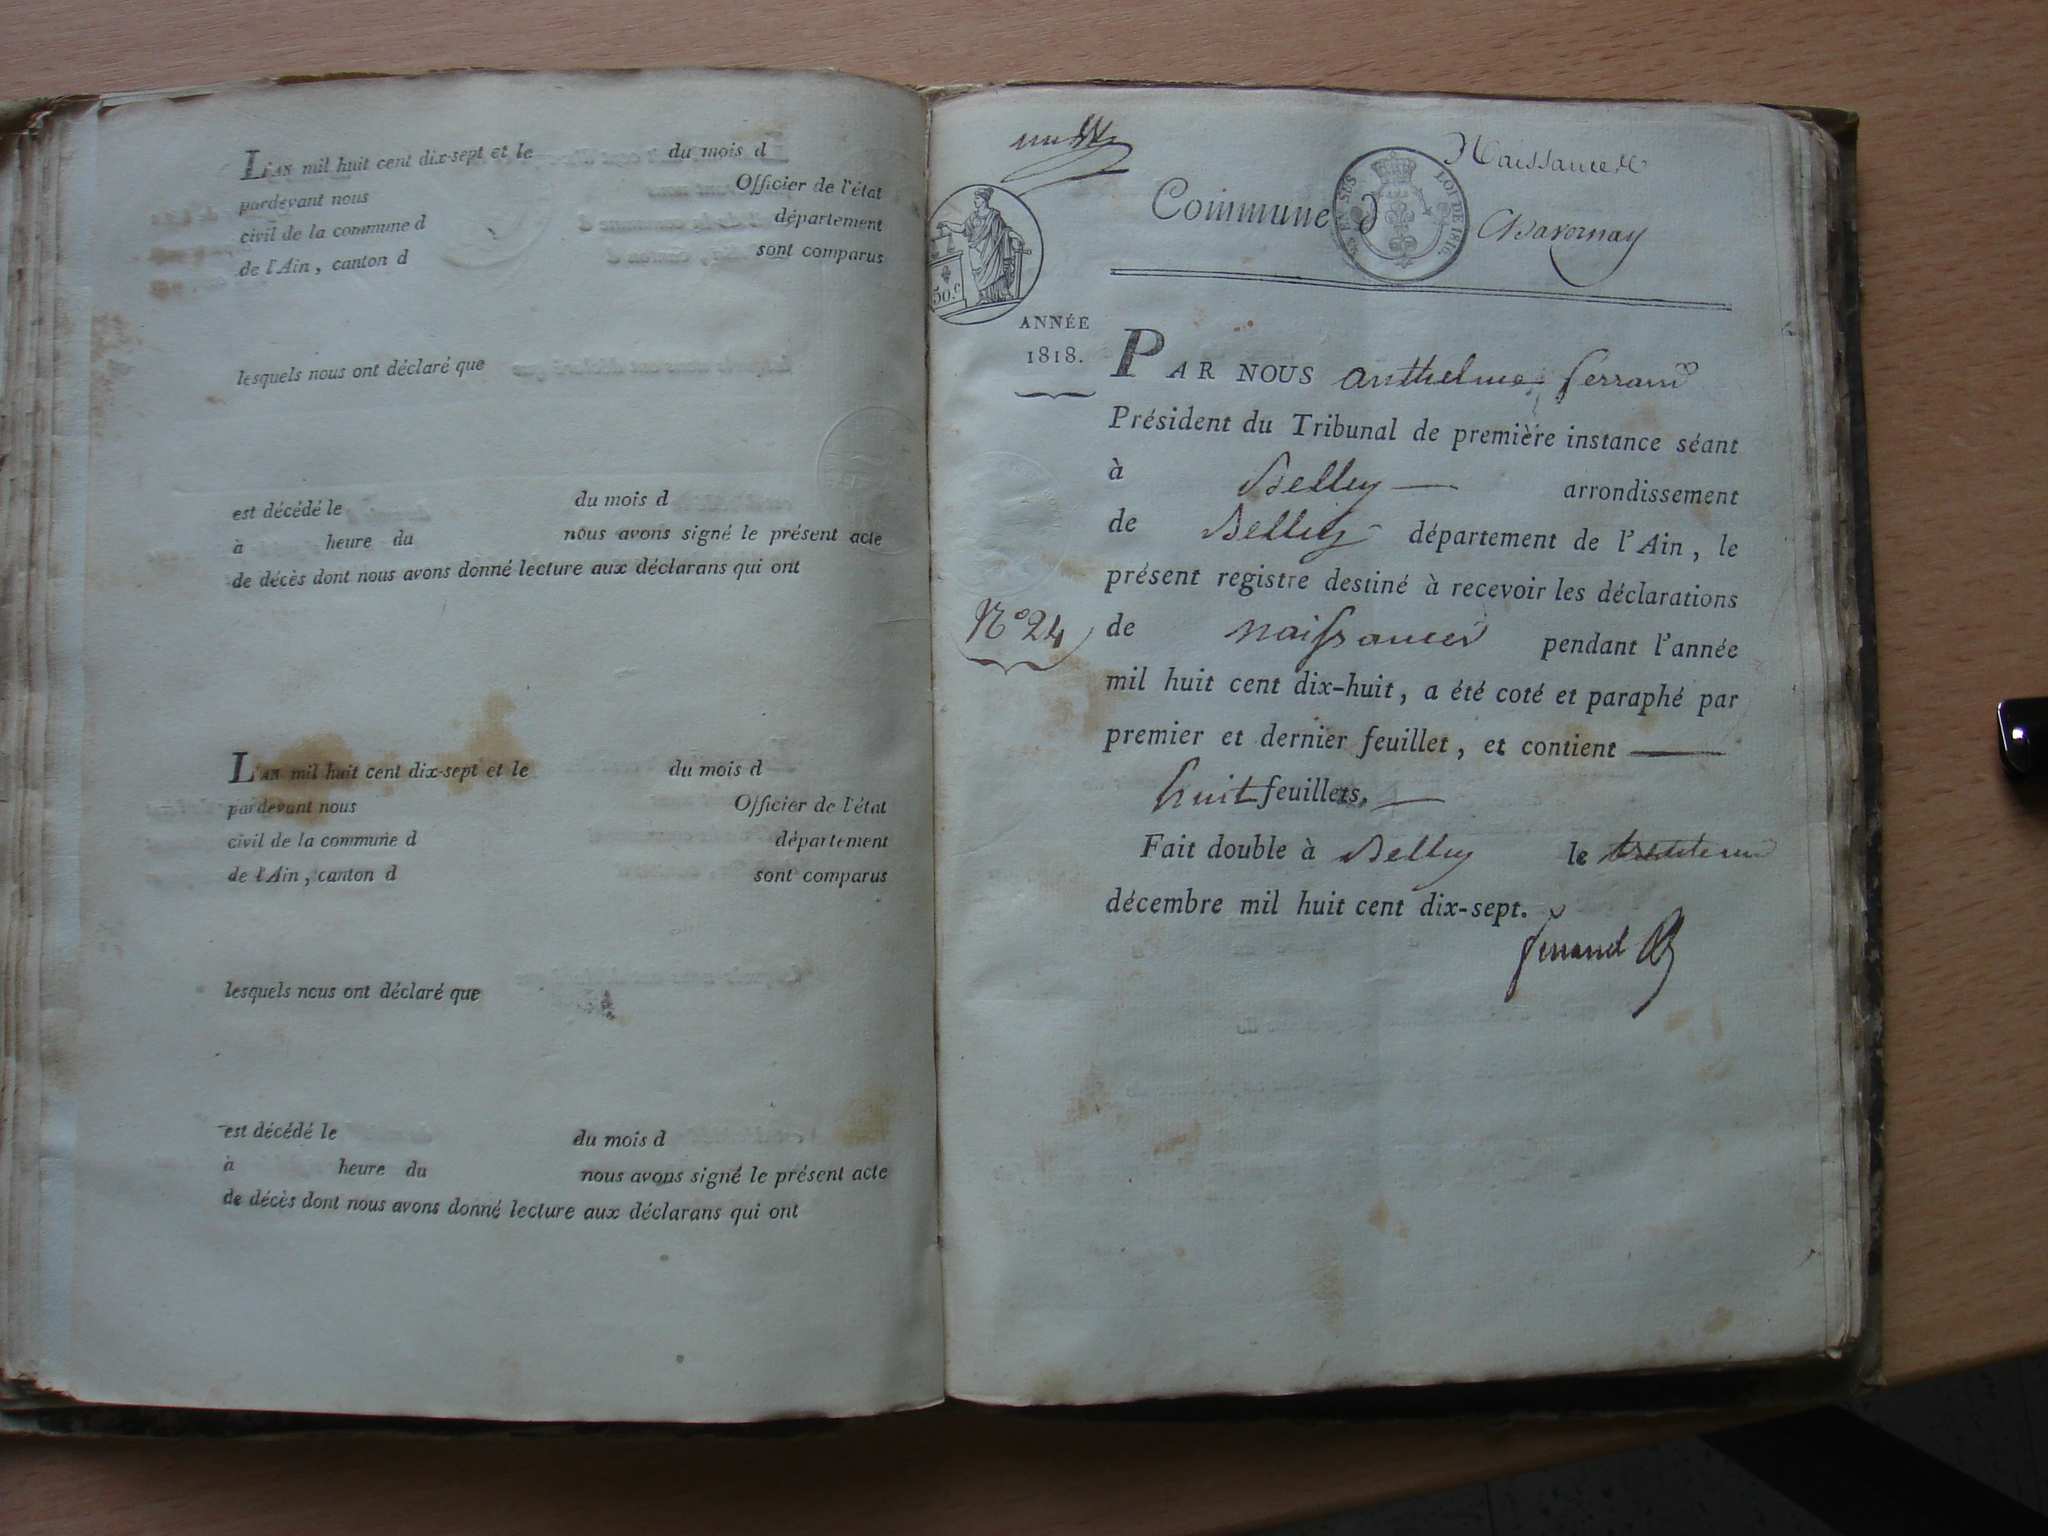 L'AN mil huit cent dix-sept et le du mois d
pardevant nous Officier de l'état
civil de la commune d département
de l'Ain, canton d sont comparus
lesquels nous ont déclaré que
est décédé le du mois d
à heure du nous avons signé le présent acte
de décès dont nous avons donné lecture aux déclarans qui ont
L'AN mil huit cent dix-sept et le du mois d
pardevant nous Officier de l'état
civil de la commune d département
de l'Ain, canton d sont comparus
lesquels nous ont déclaré que
est décédé le du mois d
à heure du nous avons signé le présent acte
de décès dont nous avons donné lecture aux déclarans qui ont
Naissances
Commune d Chavornay
EN SUS LOI DE 1816.
50.c
ANNÉE
1818.
PAR NOUS anthelme ferrand
Président du Tribunal de première instance séant
à Belley arrondissement
de Belley département de l'Ain, le
présent registre destiné à recevoir les déclarations
N° 24
de naissances pendant l'année
mil huit cent dix-huit, a été coté et paraphé par
premier et dernier feuillet, et contient
huit feuillets.
Fait double à Belley le
décembre mil huit cent dix-sept.
ferrand